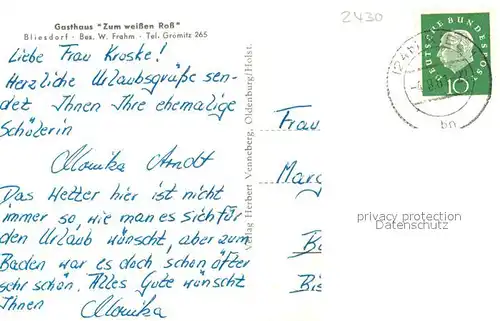 2430
Gasthaus "Zum weißen Roß"
Bliesdorf - Bes. W. Frahm - Tel. Grömitz 265
Liebe Frau Kroske!
Herzliche Urlaubsgrüße sen-
det Ihnen Ihre ehemalige
Schülerin
Monika Arndt
Das Wetter hier ist nicht
immer so, wie man es sich für
den Urlaub wünscht, aber zum
Baden war es doch schon öfter
sehr schön. Alles Gute wünscht
Ihnen Monika
Verlag Herbert Venneberg, Oldenburg/Holst.
DEUTSCHE BUNDESPOST
10
Frau
Marg
privacy protection
Datenschutz
Bis